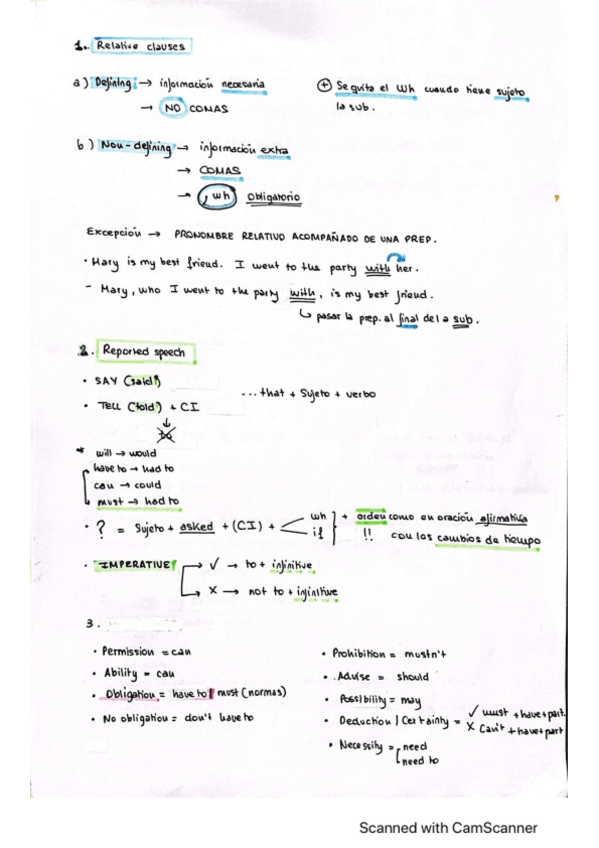 1. Relative clauses
a) Defining → información necesaria
→ NO COMAS
+ Se quita el Wh cuando tiene sujeto
la sub.
b) Non-defining → información extra
→ COMAS
→ , wh obligatorio
Excepción → PRONOMBRE RELATIVO ACOMPAÑADO DE UNA PREP.
· Mary is my best friend. I went to the party with her.
- Mary, who I went to the party with, is my best friend.
↳ pasar la prep. al final de la sub.
2. Reported speech
· SAY (said)
...that + Sujeto + verbo
· TELL (told) + CI
↓
to
* will → would
have to → had to
can → could
must → had to
· ? = Sujeto + asked + (CI) + wh if } + orden como en oración afirmativa
!! con los cambios de tiempo
· IMPERATIVE → ✓ → to + infinitive
→ X → not to + infinitive
3.
· Permission = can
· Ability = can
· Obligation = have to / must (normas)
· No obligation = don't have to
· Prohibition = mustn't
· Advise = should
· Possibility = may
· Deduction / Certainty = ✓ must + have + part.
X Can't + have + part
· Necessity = need
need to
Scanned with CamScanner